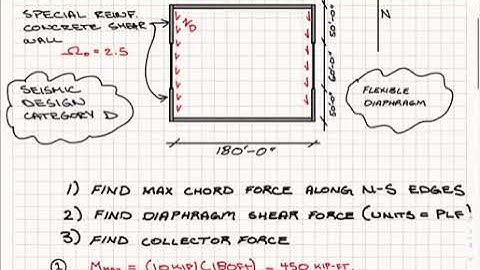 SPECIAL REINF.
CONCRETE SHEAR
WALL
Ω₀ = 2.5
V/D
50'-0"
60'-0"
50'-0"
N
SEISMIC
DESIGN
CATEGORY D
FLEXIBLE
DIAPHRAGM
180'-0"
1) FIND MAX CHORD FORCE ALONG N-S EDGES
2) FIND DIAPHRAGM SHEAR FORCE (UNITS = PLF)
3) FIND COLLECTOR FORCE
① Mmax = (10 KIP)(180FT) = 450 KIP-FT.